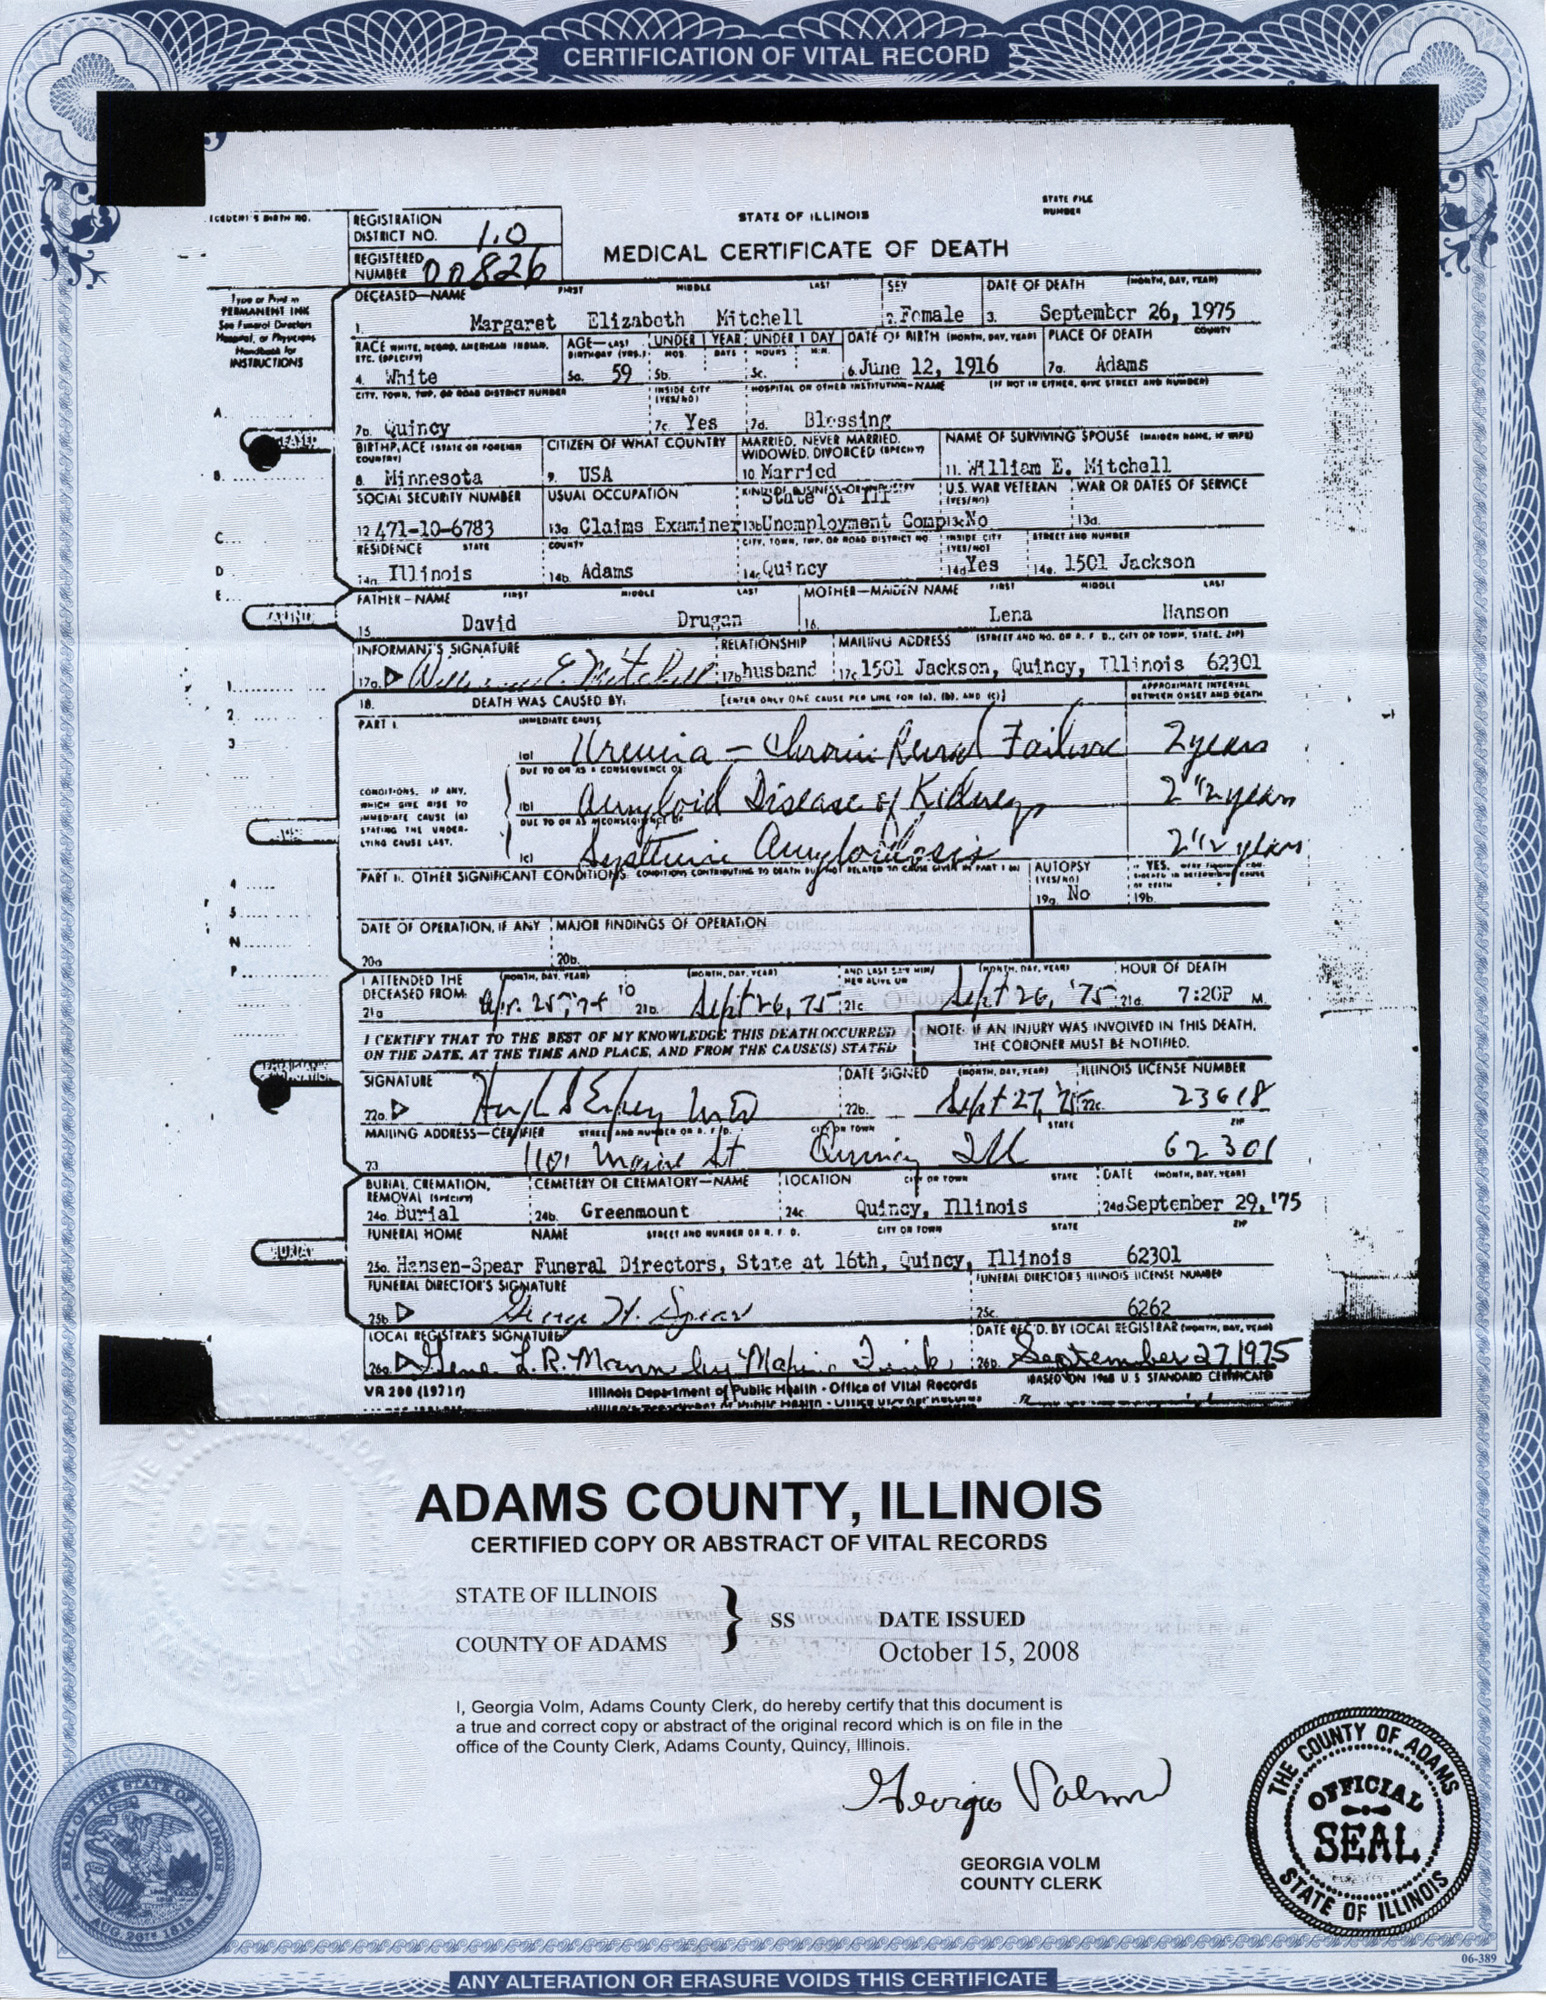 CERTIFICATION OF VITAL RECORD
STATE FILE NUMBER
REGISTRATION DISTRICT NO. 1.0
STATE OF ILLINOIS
REGISTERED NUMBER 00826
MEDICAL CERTIFICATE OF DEATH
Type or Print in PERMANENT INK
See Funeral Directors Hospital, or Physicians Handbook for INSTRUCTIONS
DECEASED—NAME FIRST MIDDLE LAST SEX DATE OF DEATH (MONTH, DAY, YEAR)
1. Margaret Elizabeth Mitchell 2. Female 3. September 26, 1975
RACE WHITE, NEGRO, AMERICAN INDIAN, ETC. (SPECIFY) AGE—LAST BIRTHDAY (YRS.) UNDER 1 YEAR MOS. DAYS UNDER 1 DAY HOURS MIN. DATE OF BIRTH (MONTH, DAY, YEAR) PLACE OF DEATH COUNTY
4. White 5a. 59 5b. 5c. 6. June 12, 1916 7a. Adams
CITY, TOWN, TWP, OR ROAD DISTRICT NUMBER INSIDE CITY (YES/NO) HOSPITAL OR OTHER INSTITUTION—NAME (IF NOT IN EITHER, GIVE STREET AND NUMBER)
7b. Quincy 7c. Yes 7d. Blessing
BIRTHPLACE (STATE OR FOREIGN COUNTRY) CITIZEN OF WHAT COUNTRY MARRIED, NEVER MARRIED, WIDOWED, DIVORCED (SPECIFY) NAME OF SURVIVING SPOUSE (MAIDEN NAME, IF WIFE)
8. Minnesota 9. USA 10. Married 11. William E. Mitchell
SOCIAL SECURITY NUMBER USUAL OCCUPATION KIND OF BUSINESS OR INDUSTRY State of Ill U.S. WAR VETERAN (YES/NO) WAR OR DATES OF SERVICE
12. 471-10-6783 13a. Claims Examiner 13b. Unemployment Comp 13c. No 13d.
RESIDENCE STATE COUNTY CITY, TOWN, TWP, OR ROAD DISTRICT NO. INSIDE CITY (YES/NO) STREET AND NUMBER
14a. Illinois 14b. Adams 14c. Quincy 14d. Yes 14e. 1501 Jackson
FATHER-NAME FIRST MIDDLE LAST MOTHER—MAIDEN NAME FIRST MIDDLE LAST
15. David Drugan 16. Lena Hanson
INFORMANT'S SIGNATURE RELATIONSHIP MAILING ADDRESS (STREET AND NO. OR R. F. D., CITY OR TOWN, STATE, ZIP)
17a. William E. Mitchell 17b. husband 17c. 1501 Jackson, Quincy, Illinois 62301
18. DEATH WAS CAUSED BY: [ENTER ONLY ONE CAUSE PER LINE FOR (a), (b), AND (c)] APPROXIMATE INTERVAL BETWEEN ONSET AND DEATH
PART I. IMMEDIATE CAUSE
(a) Uremia - Chronic Renal Failure 2 years
DUE TO OR AS A CONSEQUENCE OF
CONDITIONS, IF ANY, WHICH GIVE RISE TO IMMEDIATE CAUSE (a) STATING THE UNDERLYING CAUSE LAST.
(b) Amyloid Disease of Kidneys 2 1/2 years
DUE TO OR AS A CONSEQUENCE OF
(c) Systemic Amyloidosis 2 1/2 years
PART II. OTHER SIGNIFICANT CONDITIONS: CONDITIONS CONTRIBUTING TO DEATH BUT NOT RELATED TO CAUSE GIVEN IN PART I (a) AUTOPSY (YES/NO)
19a. No 19b.
DATE OF OPERATION, IF ANY MAJOR FINDINGS OF OPERATION
20a 20b.
I ATTENDED THE DECEASED FROM (MONTH, DAY, YEAR) TO (MONTH, DAY, YEAR) AND LAST SAW HIM/HER ALIVE ON (MONTH, DAY, YEAR) HOUR OF DEATH
21a Apr. 25, '74 21b. Sept 26, 75 21c Sept 26, '75 21d. 7:20P M.
I CERTIFY THAT TO THE BEST OF MY KNOWLEDGE THIS DEATH OCCURRED ON THE DATE, AT THE TIME AND PLACE, AND FROM THE CAUSE(S) STATED
NOTE: IF AN INJURY WAS INVOLVED IN THIS DEATH, THE CORONER MUST BE NOTIFIED.
SIGNATURE DATE SIGNED (MONTH, DAY, YEAR) ILLINOIS LICENSE NUMBER
22a. MD 22b. Sept 27, '75 22c. 23618
MAILING ADDRESS—CERTIFIER STREET AND NUMBER OR R. F. D. CITY OR TOWN STATE ZIP
23 1101 Maine St Quincy Ill 62301
BURIAL, CREMATION, REMOVAL (SPECIFY) CEMETERY OR CREMATORY—NAME LOCATION CITY OR TOWN STATE DATE (MONTH, DAY, YEAR)
24a. Burial 24b. Greenmount 24c. Quincy, Illinois 24d September 29, '75
FUNERAL HOME NAME STREET AND NUMBER OR R. F. D. CITY OR TOWN STATE ZIP
25a. Hansen-Spear Funeral Directors, State at 16th, Quincy, Illinois 62301
FUNERAL DIRECTOR'S SIGNATURE FUNERAL DIRECTOR'S ILLINOIS LICENSE NUMBER
25b George H. Spear 25c. 6262
LOCAL REGISTRAR'S SIGNATURE DATE REC'D. BY LOCAL REGISTRAR (MONTH, DAY, YEAR)
26a. Gene L.R. Mann by 26b. September 27 1975
VR 200 (1971r) Illinois Department of Public Health - Office of Vital Records BASED ON 1968 U S STANDARD CERTIFICATE
ADAMS COUNTY, ILLINOIS
CERTIFIED COPY OR ABSTRACT OF VITAL RECORDS
STATE OF ILLINOIS
COUNTY OF ADAMS
} SS
DATE ISSUED
October 15, 2008
I, Georgia Volm, Adams County Clerk, do hereby certify that this document is
a true and correct copy or abstract of the original record which is on file in the
office of the County Clerk, Adams County, Quincy, Illinois.
Georgia Volm
GEORGIA VOLM
COUNTY CLERK
SEAL OF THE STATE OF ILLINOIS
AUG. 26TH 1818
THE COUNTY OF ADAMS
OFFICIAL
SEAL
STATE OF ILLINOIS
06-389
ANY ALTERATION OR ERASURE VOIDS THIS CERTIFICATE